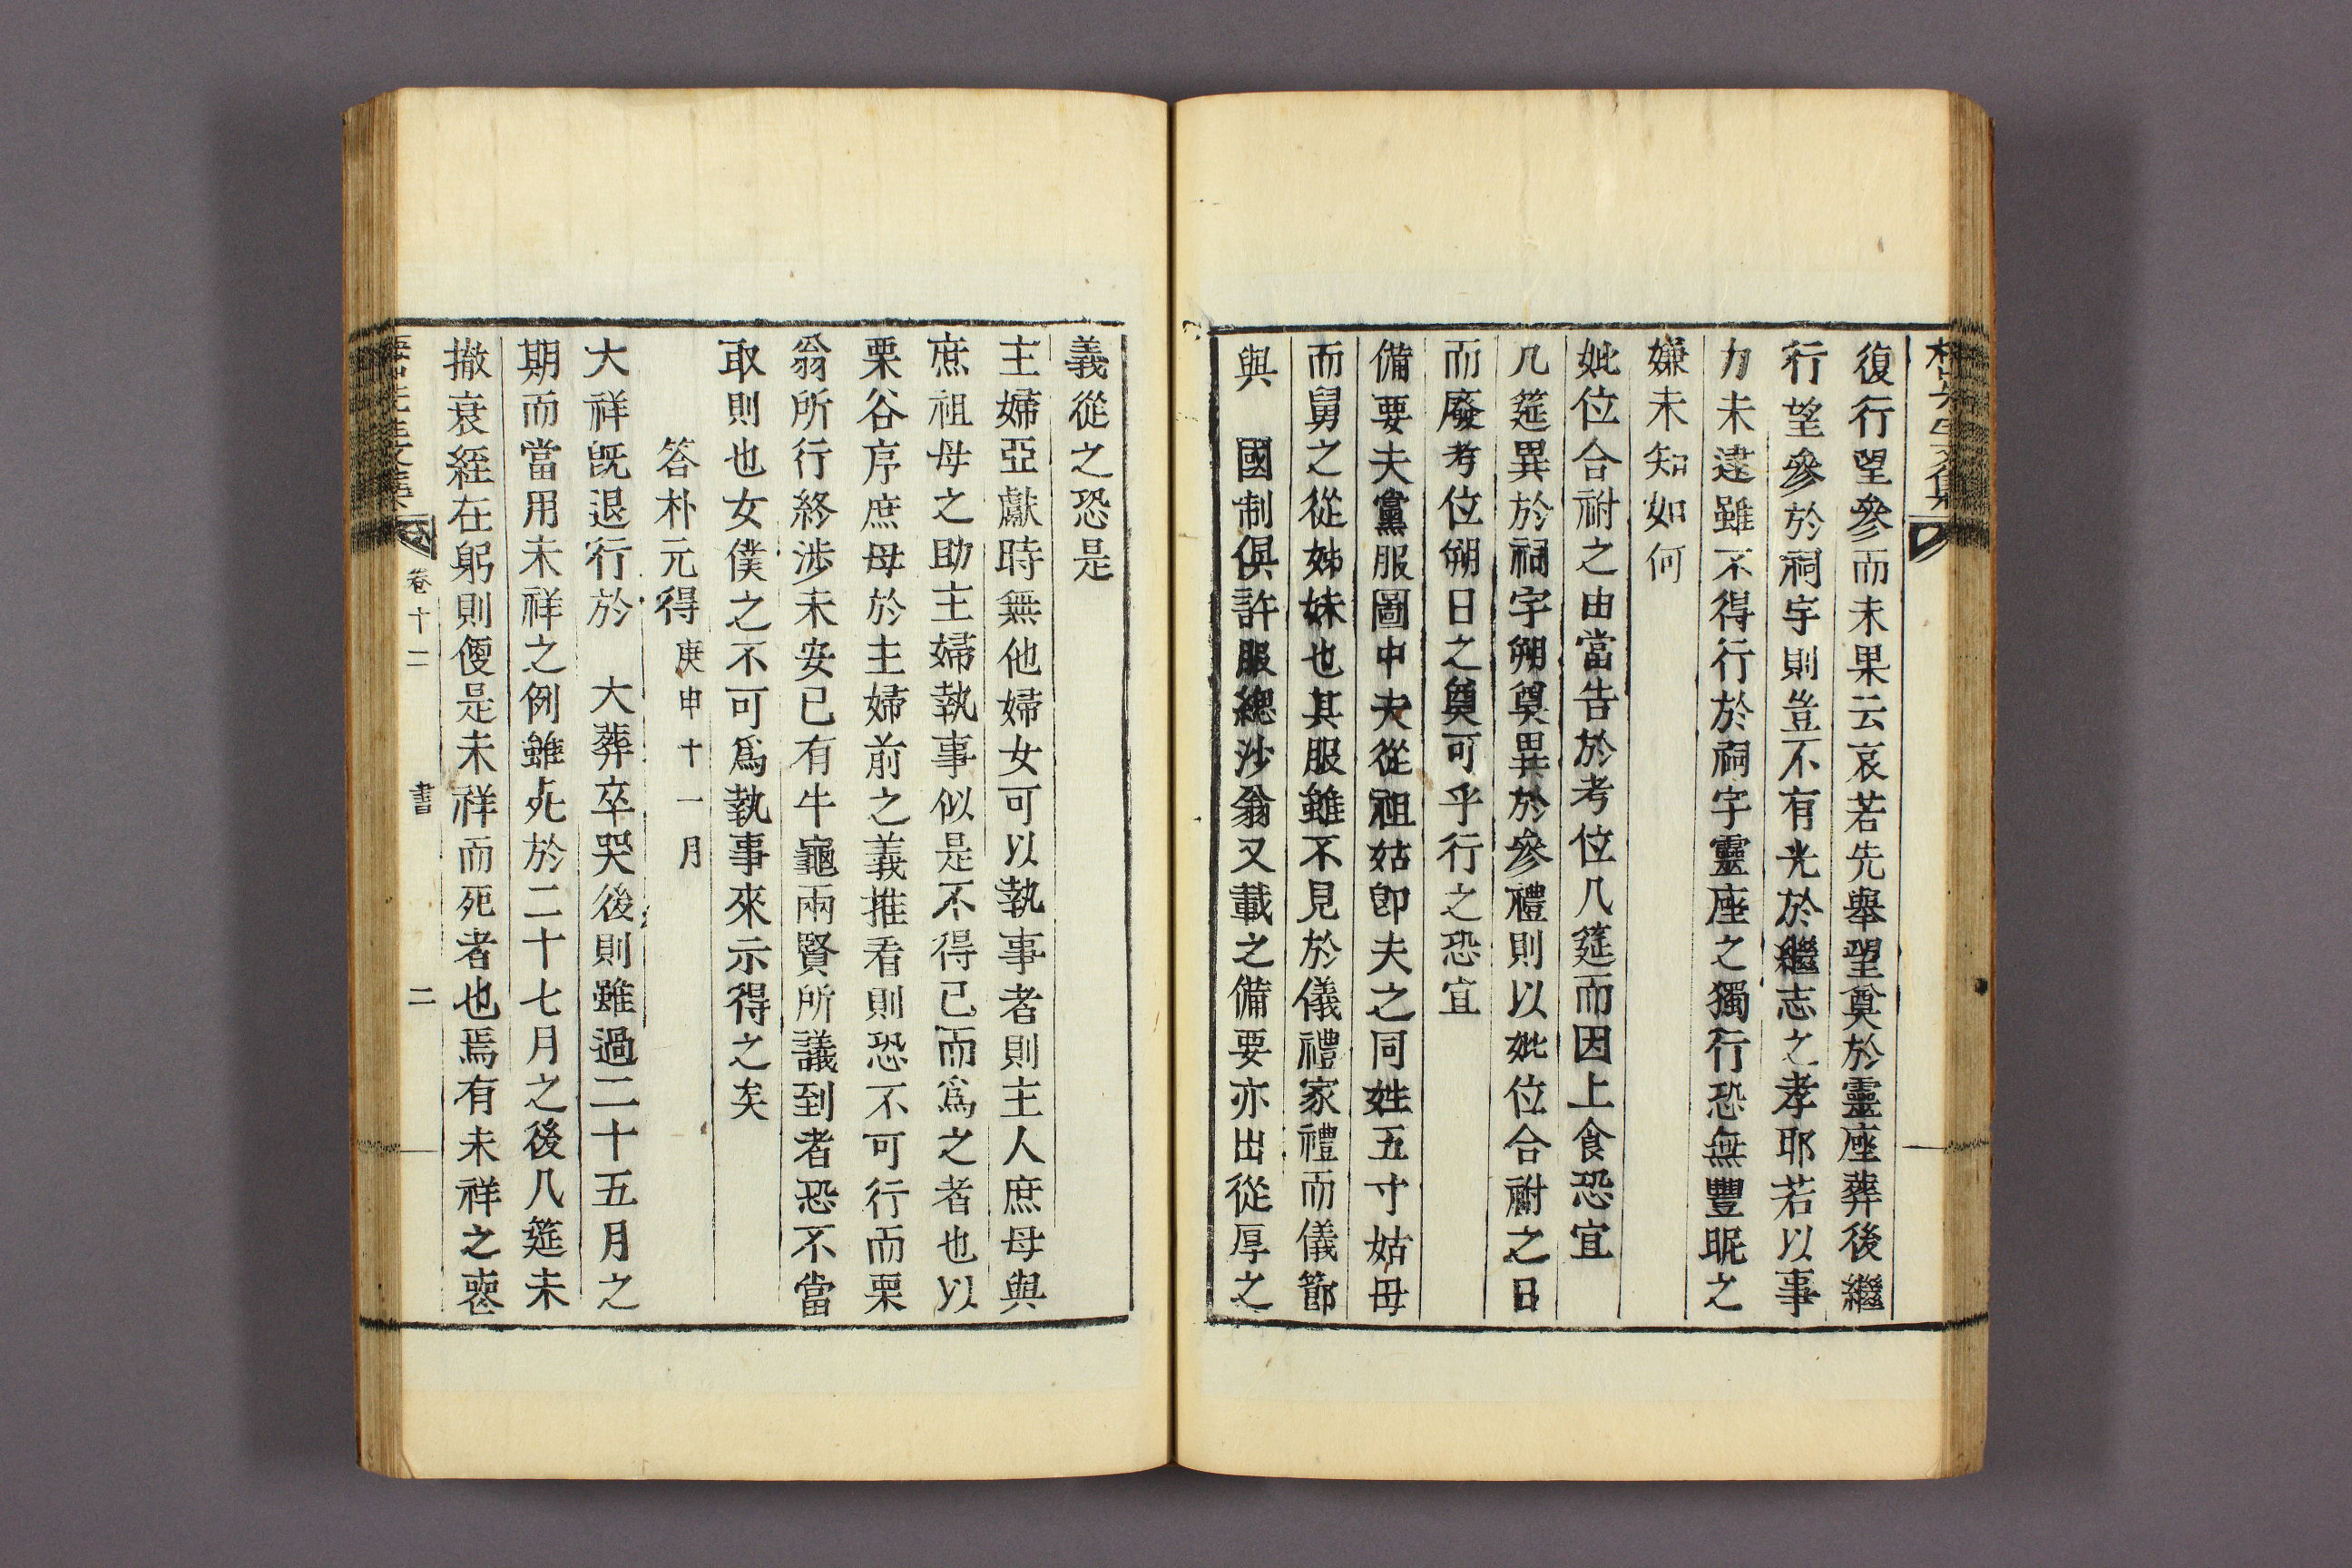 復行望參而未果云哀若先舉望奠於靈座葬後繼
行望參於祠宇則豈不有光於繼志之孝耶若以事
力未逮雖不得行於祠宇靈座之獨行恐無豐昵之
嫌未知如何
妣位合祔之由當告於考位几筵而因上食恐宜
几筵異於祠宇朔奠異於參禮則以妣位合祔之日
而廢考位朔日之奠可乎行之恐宜
備要夫黨服圖中夫從祖姑卽夫之同姓五寸姑母
而舅之從姊妹也其服雖不見於儀禮家禮而儀節
與 國制俱許服緦沙翁又載之備要亦出從厚之
義從之恐是
主婦亞獻時無他婦女可以執事者則主人庶母與
庶祖母之助主婦執事似是不得已而爲之者也以
栗谷序庶母於主婦前之義推看則恐不可行而栗
翁所行終涉未安已有牛龜兩賢所議到者恐不當
取則也女僕之不可爲執事來示得之矣
答朴元得庚申十一月
大祥旣退行於 大葬卒哭後則雖過二十五月之
期而當用未祥之例雖死於二十七月之後几筵未
撤衰絰在躬則便是未祥而死者也焉有未祥之喪
卷十二 書 二